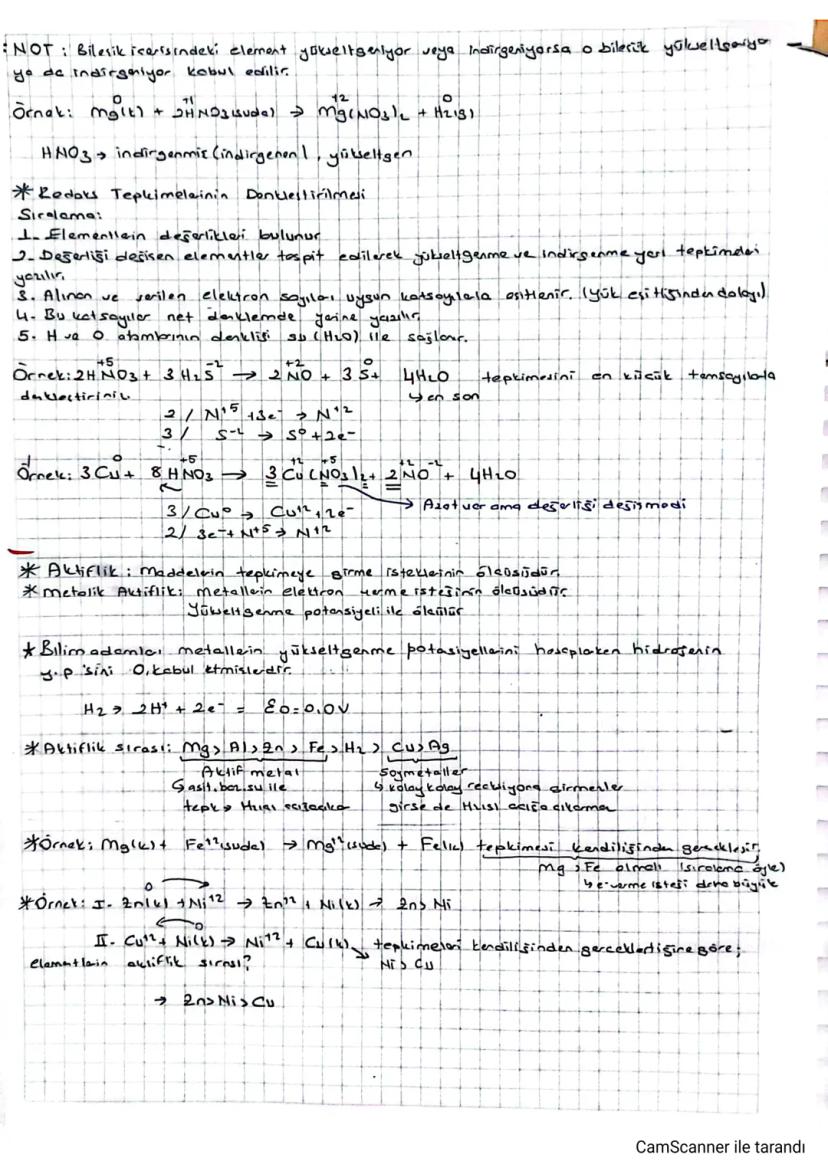 NOT : Bileşik içerisindeki element yükseltgeniyor veya indirgeniyorsa o bileşik yükseltgeniyor
ya da indirgeniyor kabul edilir.
Örnek: Mg(k)⁰ + 2H⁺¹NO3(suda) → Mg⁺²(NO3)2 + H2⁰(g)
HNO3 → indirgenmiş (indirgenen), yükseltgen
* Redoks Tepkimelerinin Denkleştirilmesi
Sıralama:
1- Elementlerin değerlikleri bulunur
2- Değerliği değişen elementler tespit edilerek yükseltgenme ve indirgenme yarı tepkimeleri
yazılır.
3. Alınan ve verilen elektron sayıları uygun katsayılarla eşitlenir. (yük eşitliğinden dolayı)
4- Bu katsayılar net denklemde yerine yazılır
5. H ve O atomlarının denkliği su (H2O) ile sağlanır.
Örnek: 2HN⁺⁵O3 + 3H2S⁻² → 2N⁺²O + 3S⁰ + 4H2O tepkimesini en küçük tamsayılarla
denkleştiriniz ↳ en son
2 / N⁺⁵ + 3e⁻ → N⁺²
3 / S⁻² → S⁰ + 2e⁻
Örnek: 3Cu⁰ + 8HN⁺⁵O3 → 3Cu⁺²(N⁺⁵O3)2 + 2N⁺²O⁻² + 4H2O
3/ Cu⁰ → Cu⁺² + 2e⁻ → Azot var ama değerliği değişmedi
2/ 3e⁻ + N⁺⁵ → N⁺²
* Aktiflik : maddelerin tepkimeye girme isteklerinin ölçüsüdür.
* metalik Aktiflik: metallerin elektron verme isteğinin ölçüsüdür.
Yükseltgenme potansiyeli ile ölçülür
* Bilim adamları metallerin yükseltgenme potasiyellerini hesaplarken hidrojenin
y.p 'sini 0,kabul etmişlerdir.
H2 → 2H⁺ + 2e⁻ = Ɛ0=0.0V
* Aktiflik sırası: Mg > Al > Zn > Fe > H2 > Cu > Ag
Aktif metal Soymetaller
↳ asit, baz, su ile ↳ kolay kolay reaksiyona girmezler
tepk → H2(g) açığa çıkar girse de H2(g) açığa çıkarmaz
* Örnek: Mg(k) + Fe⁺²(suda) → Mg⁺²(suda) + Fe(k) tepkimesi kendiliğinden gerçekleşir,
Mg > Fe olmalı (sıralama öyle)
↳ e⁻ verme isteği daha büyük
* Örnek: I- Zn⁰(k) + Ni⁺² → Zn⁺² + Ni(k) → Zn > Ni
II- Cu⁺² + Ni⁰(k) → Ni⁺² + Cu(k) tepkimeleri kendiliğinden gerçekleştiğine göre;
elementlerin aktiflik sırası? ↘ Ni > Cu
→ Zn > Ni > Cu
CamScanner ile tarandı